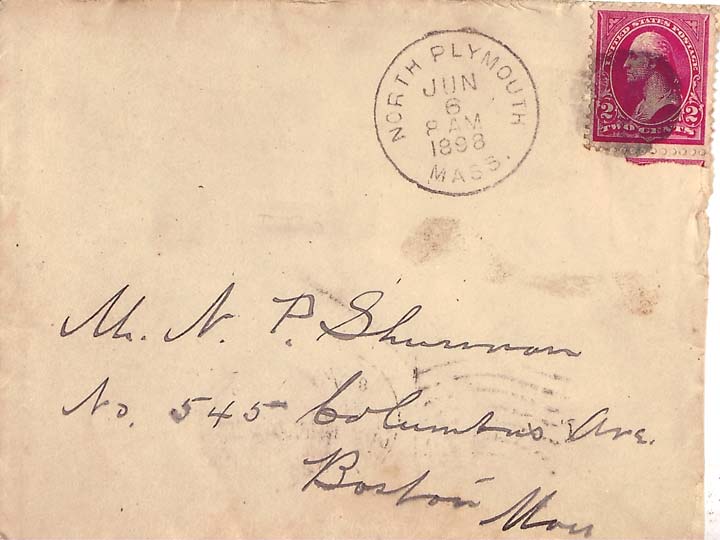 NORTH PLYMOUTH
JUN
6
8 AM
1898
MASS.
UNITED STATES POSTAGE
2 2
TWO CENTS
Mr. N. P. Shurman
No. 545 Columbus Ave.
Boston Mass